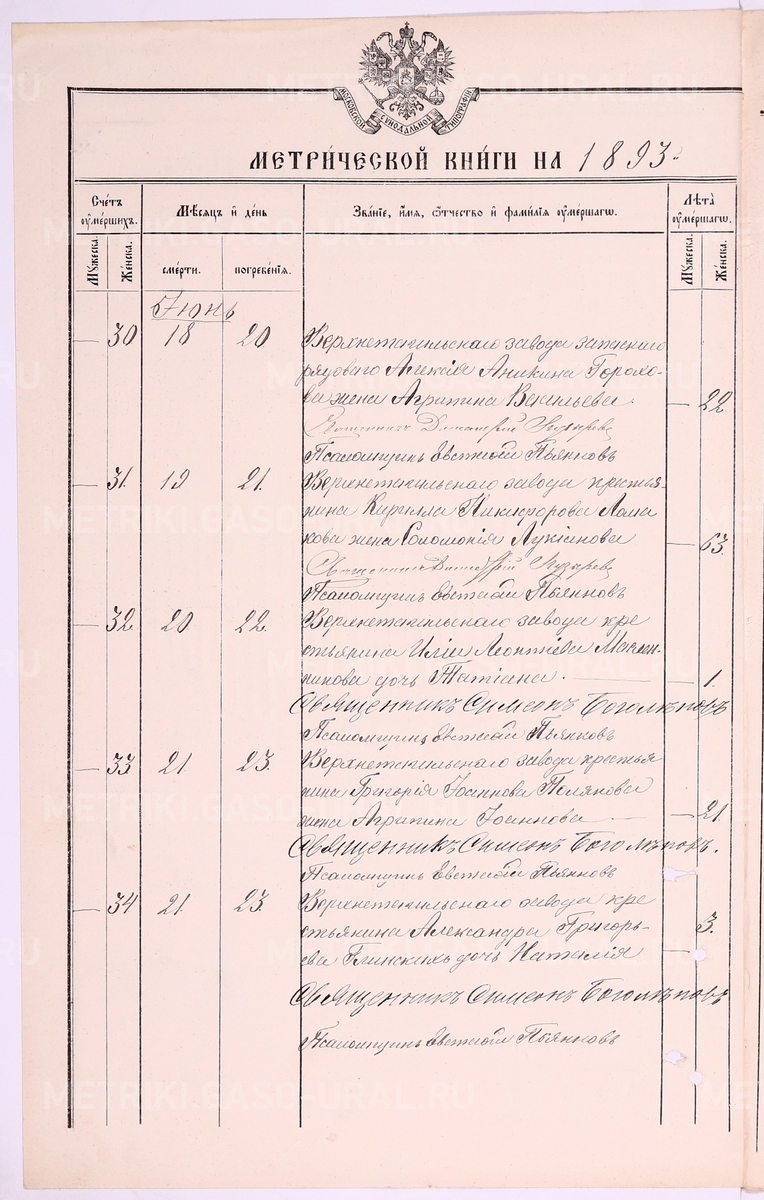 МОСКОВСКОЙ СѴНОДАЛЬНОЙ ТИПОГРАФІИ
МЕТРИ́ЧЕСКОЙ КНИ́ГИ НА 1893.
Сче́тъ ᲂу҆ме́ршихъ.
Мѣ́сѧцъ и҆ де́нь
Зва́нїе, и҆́мѧ, ѻ҆́тчество и҆ фами́лїѧ ᲂу҆ме́ршагѡ.
Лѣ́та ᲂу҆ме́ршагѡ.
Мꙋ́жеска.
Же́нска.
сме́рти.
погребе́нїѧ.
Мꙋ́жеска.
Же́нска.
Іюнь
— 30 18 20 Верхнетагильскаго завода запаснаго
рядоваго Алексія Аникина Горохо-
ва жена Агрипина Васильева. — 22
Священникъ Димитрій
Псаломщикъ Евгеній Пьянковъ
— 31. 19 21. Верхнетагильскаго завода крестья-
нина Кирилла Никифорова Лома
кова жена Соломонія Лукіанова — 63.
Священникъ Димитрій
Псаломщикъ Евгеній Пьянковъ
— 32. 20 22. Верхнетагильскаго завода кре
стьянина Иліи Леонтіева Маслен-
никова дочь Татіана. — 1.
Священникъ Симеонъ Боголѣповъ
Псаломщикъ Евгеній Пьянковъ
— 33 21. 23. Верхнетагильскаго завода крестья
нина Григорія Іоаннова Полякова
жена Агрипина Іоаннова — 21
Священникъ Симеонъ Боголѣповъ.
Псаломщикъ Евгеній Пьянковъ
— 34 21. 23. Верхнетагильскаго завода кре
стьянина Александра Григорь- 3.
ева Глинскихъ дочь Наталія —
Священникъ Симеонъ Боголѣповъ
Псаломщикъ Евгеній Пьянковъ
METRIKI.GASO-URAL.RU